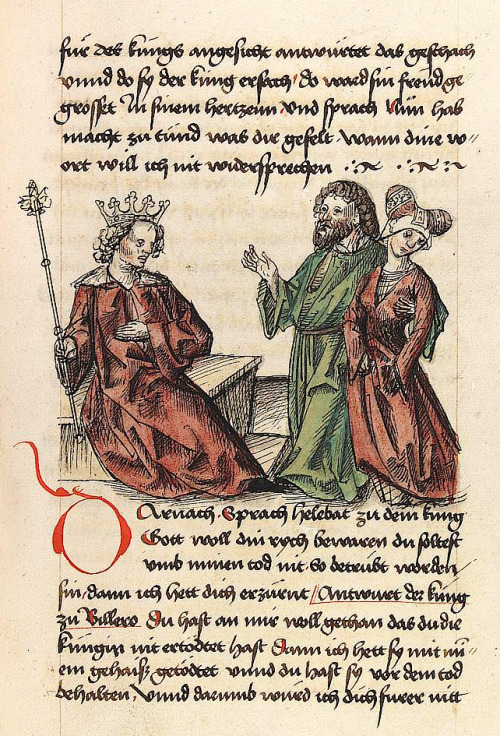 für des küngs angesicht antwürtet das geschach
vnnd do sy der küng ersach / do ward sin freud ge
grösset In sinem hertzenn vnd sprach Nün hab
macht zu tünd was dir gefelt wann dine w-
ort will ich nit widersprechen
Darnach sprach helebat zu dem küng
Gott woll din rych bewaren du soltest
vmb minen tod nit so betrübt worden
sin / dann ich hett dich erzürnt / Antwurt der küng
zu Billero Du hast an mir woll gethan das du die
küngin nit ertödtet hast Dann ich hett sy mit mi=
em gehaiß getödtet vnnd du hast sy vor dem tod
behalten / vnnd darumb würd ich dich fürer nitt